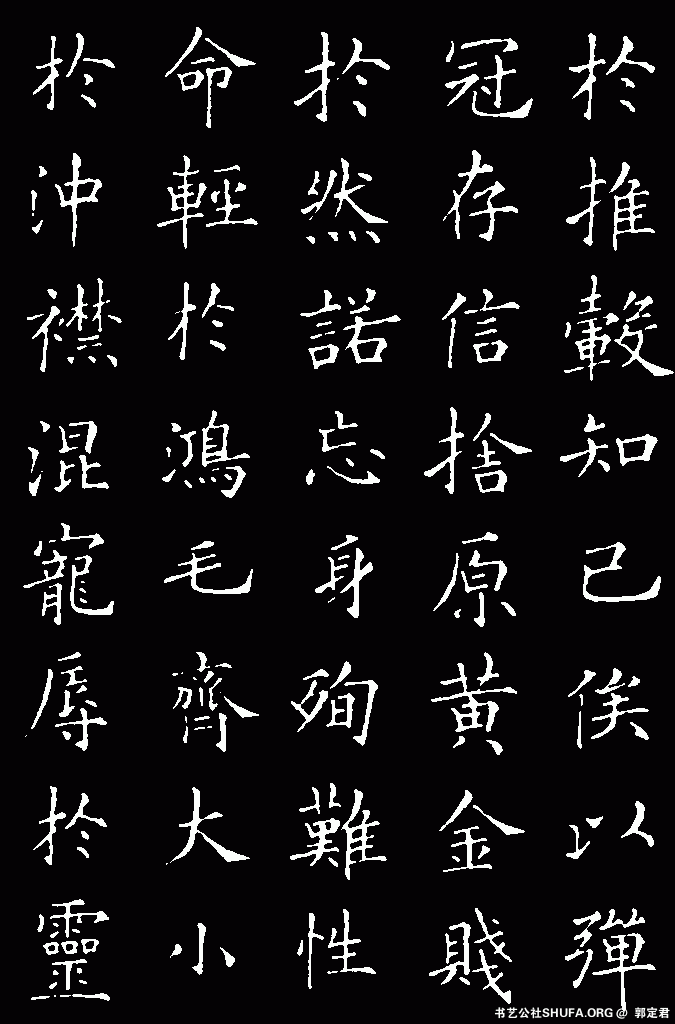 於推轂知己俟以彈
冠存信捨原黄金賤
於然諾忘身殉難性
命輕於鴻毛齊大小
於沖襟混寵辱於靈
书艺公社SHUFA.ORG @ 郭定君